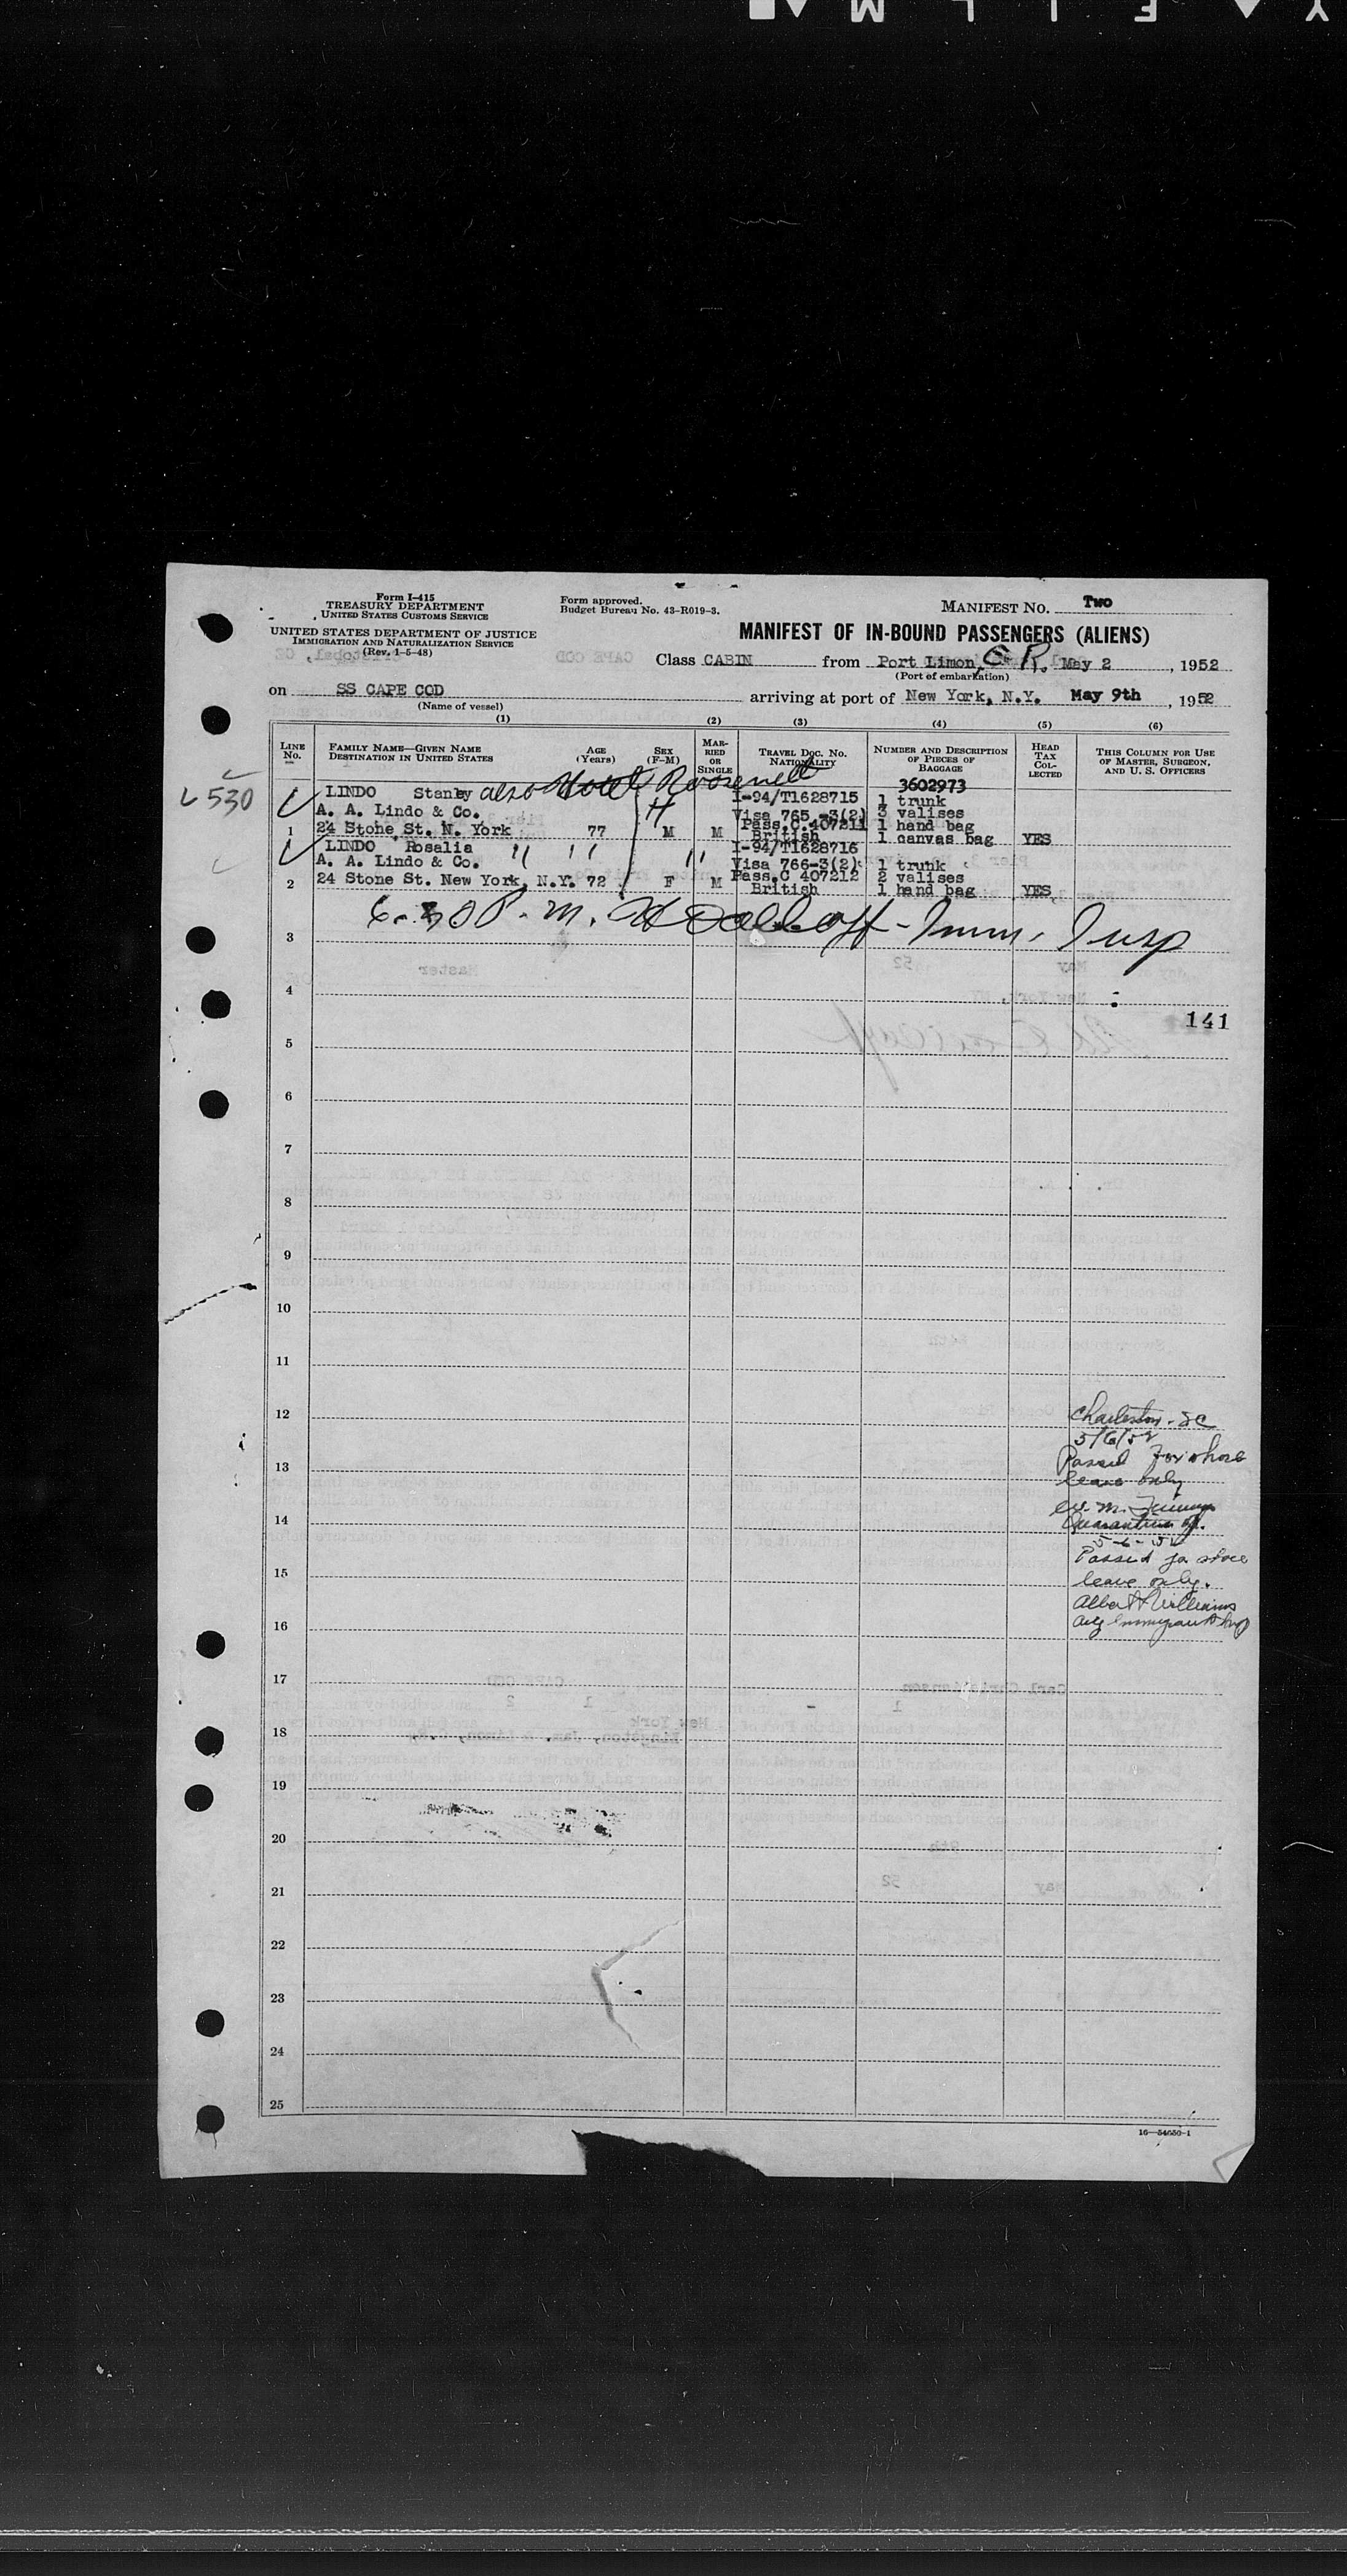 Form I-415
TREASURY DEPARTMENT
UNITED STATES CUSTOMS SERVICE
UNITED STATES DEPARTMENT OF JUSTICE
IMMIGRATION AND NATURALIZATION SERVICE
(Rev. 1-5-48)
Form approved.
Budget Bureau No. 43-R019-3.
MANIFEST No. Two
MANIFEST OF IN-BOUND PASSENGERS (ALIENS)
Class CABIN from Port Limon, C.R. May 2, 1952
(Port of embarkation)
on SS CAPE COD arriving at port of New York, N.Y. May 9th, 1952
(Name of vessel)
(1) (2) (3) (4) (5) (6)
LINE No.
FAMILY NAME—GIVEN NAME
DESTINATION IN UNITED STATES
AGE (Years)
SEX (F-M)
MARRIED OR SINGLE
TRAVEL DOC. No. NATIONALITY
NUMBER AND DESCRIPTION OF PIECES OF BAGGAGE
HEAD TAX COLLECTED
THIS COLUMN FOR USE OF MASTER, SURGEON, AND U. S. OFFICERS
3602973
530
LINDO Stanley also Hotel Roosevelt I-94/T1628715 1 trunk
A. A. Lindo & Co. Visa 765-3(2) 3 valises
24 Stone St. N. York Pass.C.407211 1 hand bag
1 77 M M British 1 canvas bag YES
LINDO Rosalia " " " I-94/T1628716
A. A. Lindo & Co. Visa 766-3(2) 1 trunk
24 Stone St. New York, N.Y. 72 F M Pass.C 407212 2 valises
2 British 1 hand bag YES
6-30 P.m. Imm. Insp
3
4
141
5
6
7
8
9
10
11
12
Charleston - SC
5/6/52
13
Passed for shore
leave only
14
Quarantine
5-6-52
Passed for shore
15
leave only.
Albert Williams
16
17
18
19
20
21
22
23
24
25
16—54650-1